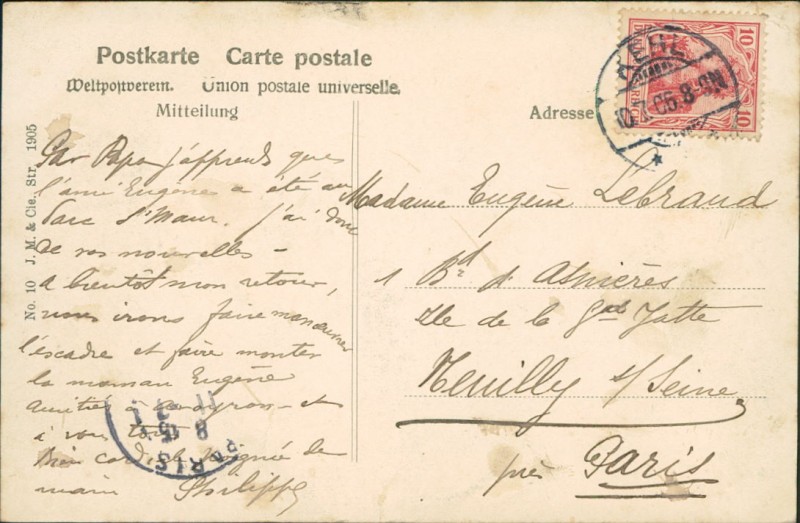 Postkarte Carte postale
Weltpostverein. Union postale universelle.
Mitteilung
Adresse
No. 10 J. M. & Cie., Str. 1905
Par Papa j'apprends que
l'ami Eugène a été au
Parc St Maur. J'ai donc
de vos nouvelles –
A bientôt mon retour,
nous irons faire manœuvrer
l'escadre et faire monter
la maman Eugène
amitiés à
et
à vous tous
Bien cordiale poignée de
main Philippe
Madame Eugène Lebraud
1 Bd d'Asnières
Ile de la Gde Jatte
Neuilly s/Seine
près Paris
KEHL
05.8-9N
10
10
PARIS
11
8
05